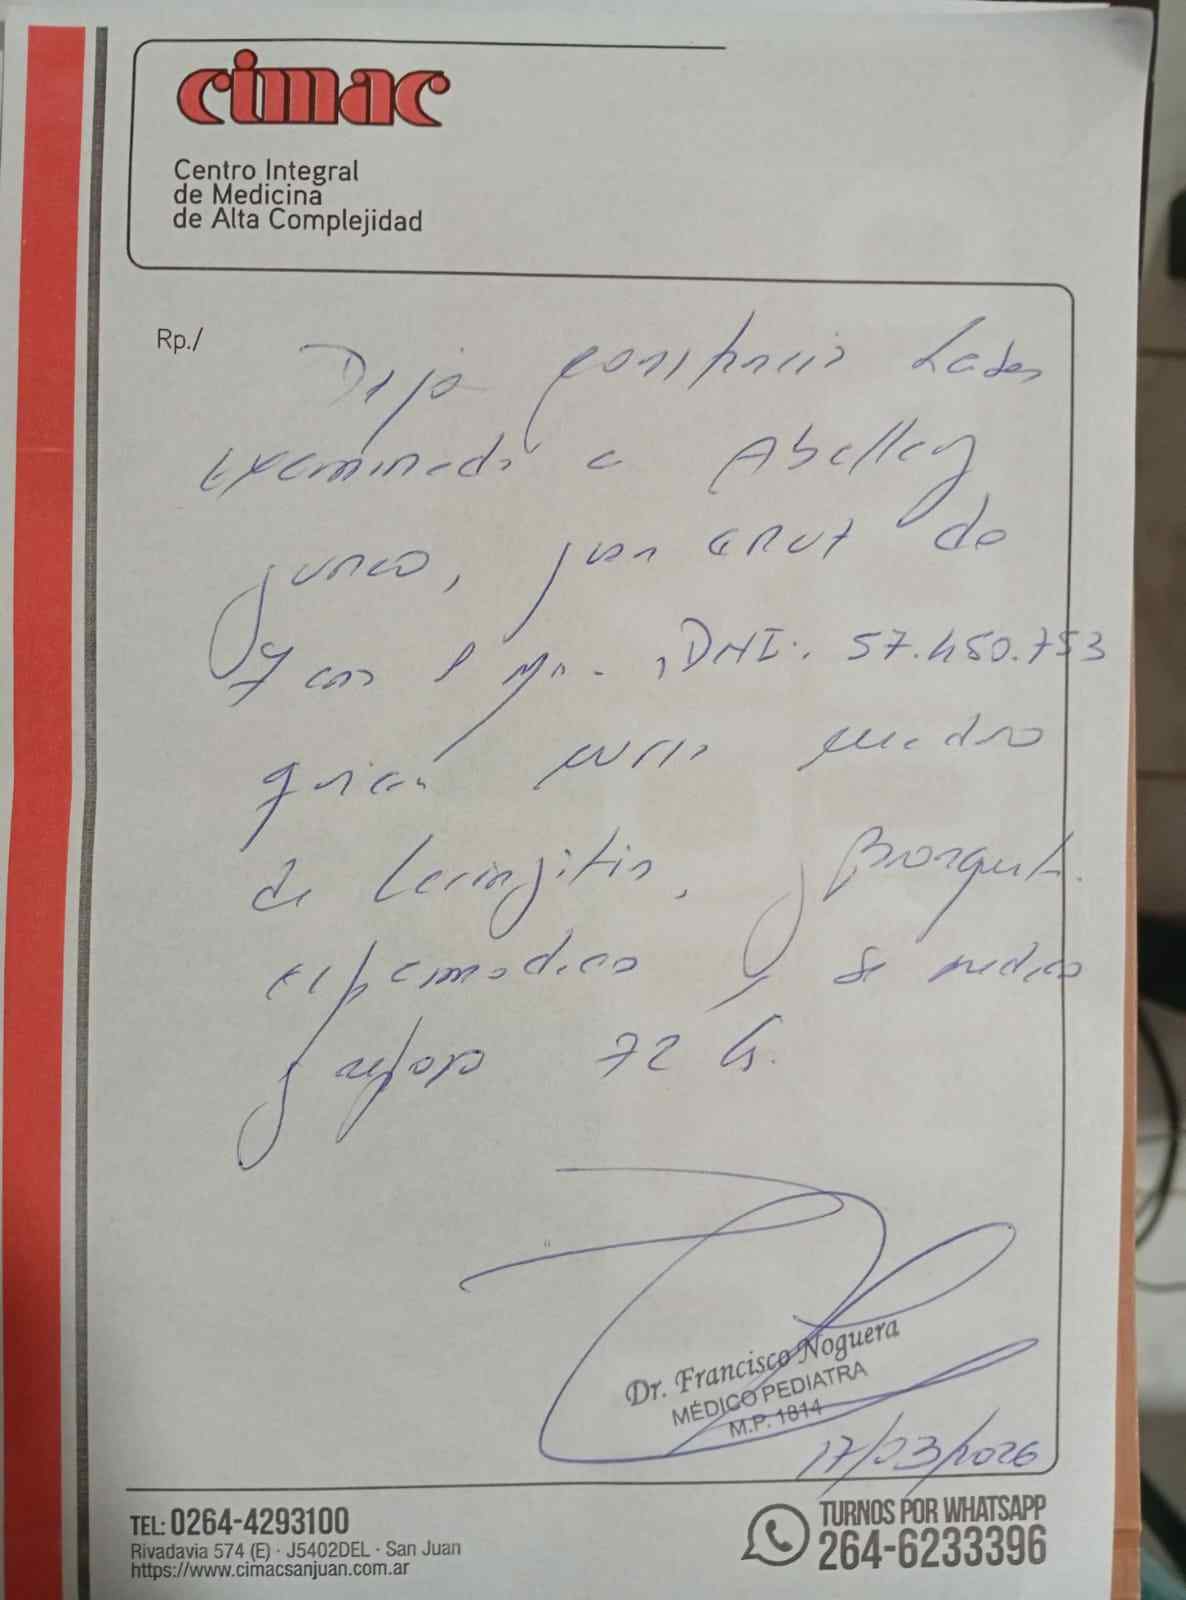 cimac
Centro Integral
de Medicina
de Alta Complejidad
Rp./
Dejo constancia haber
examinado a Abellay
Junco, Juan Cruz de
7 años DNI: 57.450.753
quien cursa cuadro
de laringitis, y Bronquit.
espasmodica y se indica
reposo 72 hs.
Dr. Francisco Noguera
MÉDICO PEDIATRA
M.P. 1814
17/03/2026
TEL: 0264-4293100
Rivadavia 574 (E) · J5402DEL · San Juan
https://www.cimacsanjuan.com.ar
TURNOS POR WHATSAPP
264-6233396